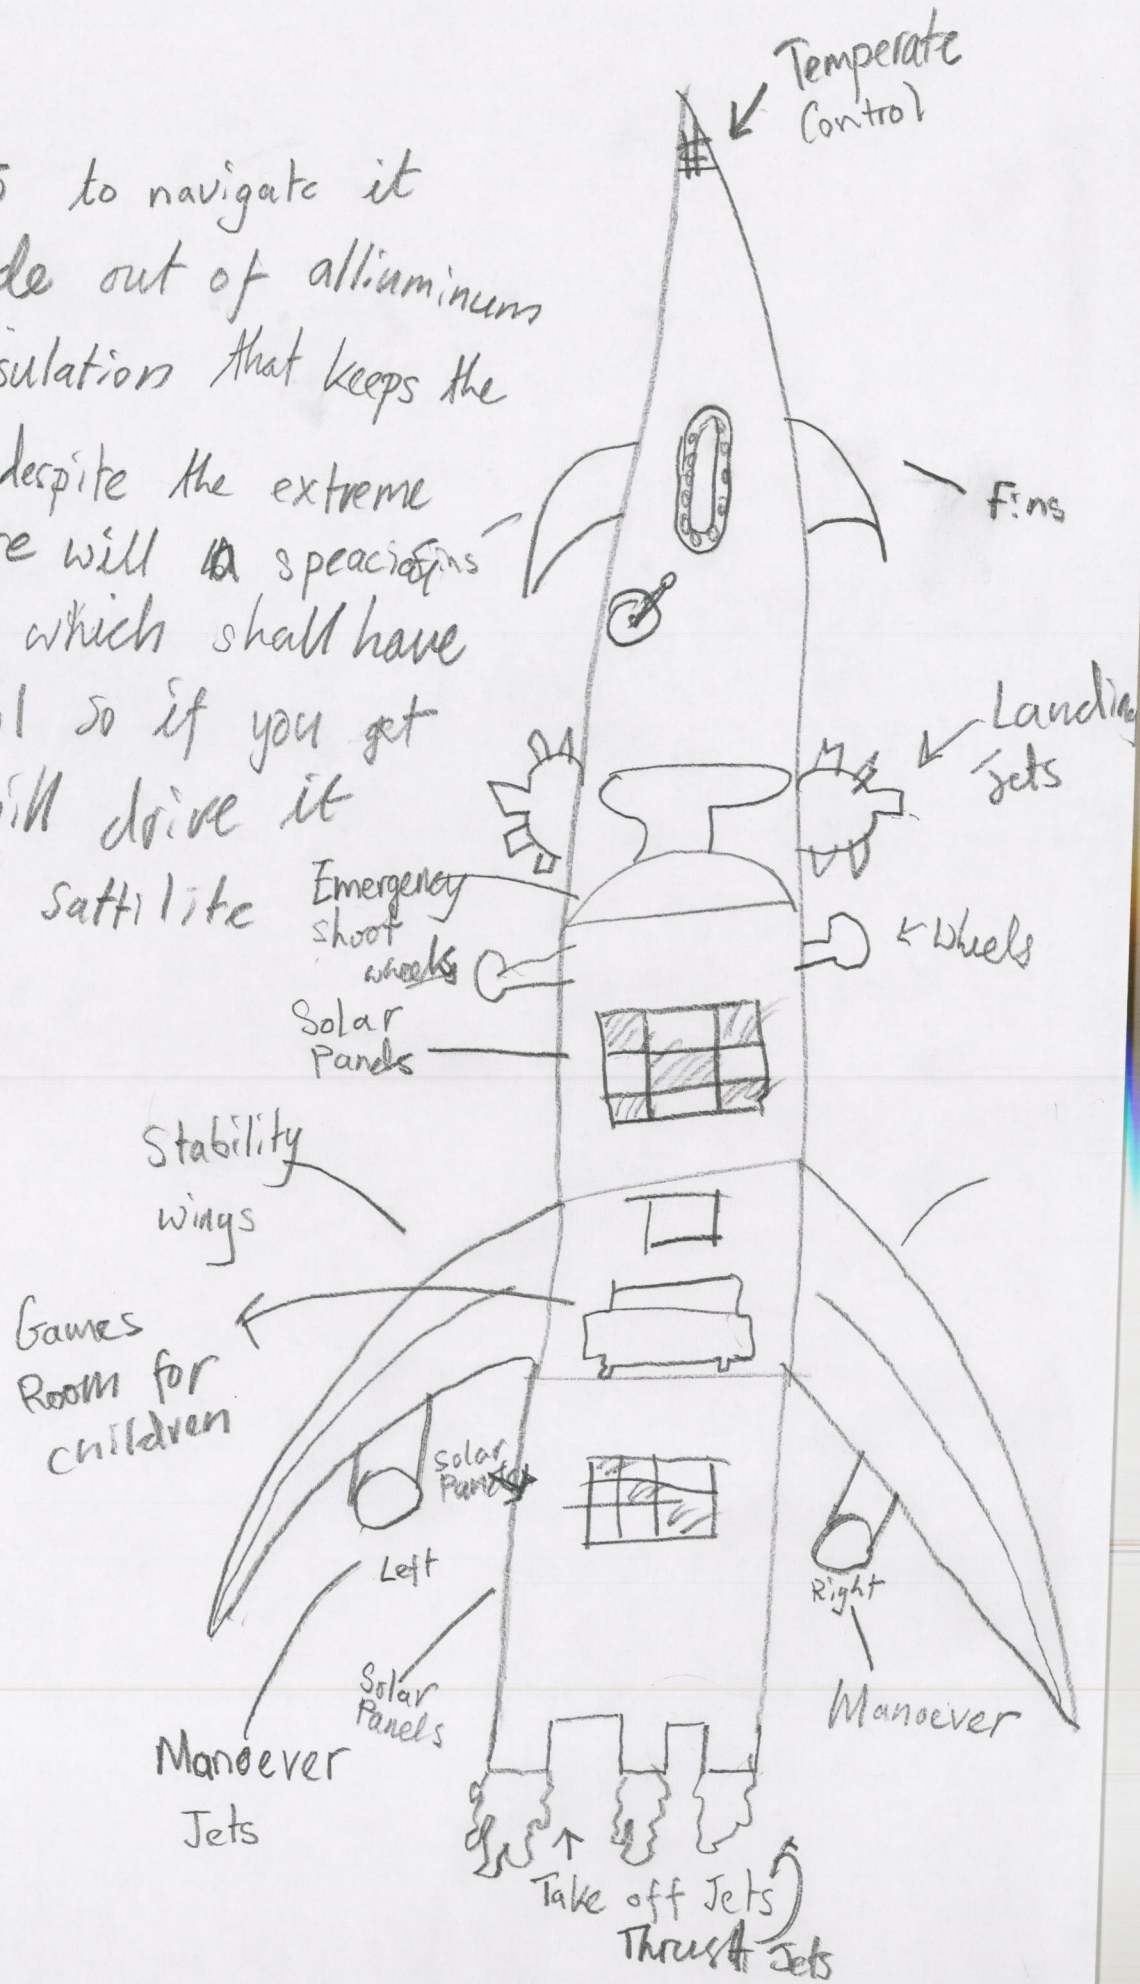 Temperate
Control
to navigate it
de out of alliuminum
sulation that keeps the
despite the extreme
re will a speacial
Fins
which shall have
l so if you get
ill drive it
sattilite
Fins
Landing
Jets
Emergency
shoot
wheels
Wheels
Solar
Panels
Stability
wings
Games
Room for
children
Solar
Panels
Left
Right
Solar
Panels
Manoever
Manoever
Jets
Take off Jets
Thrust Jets